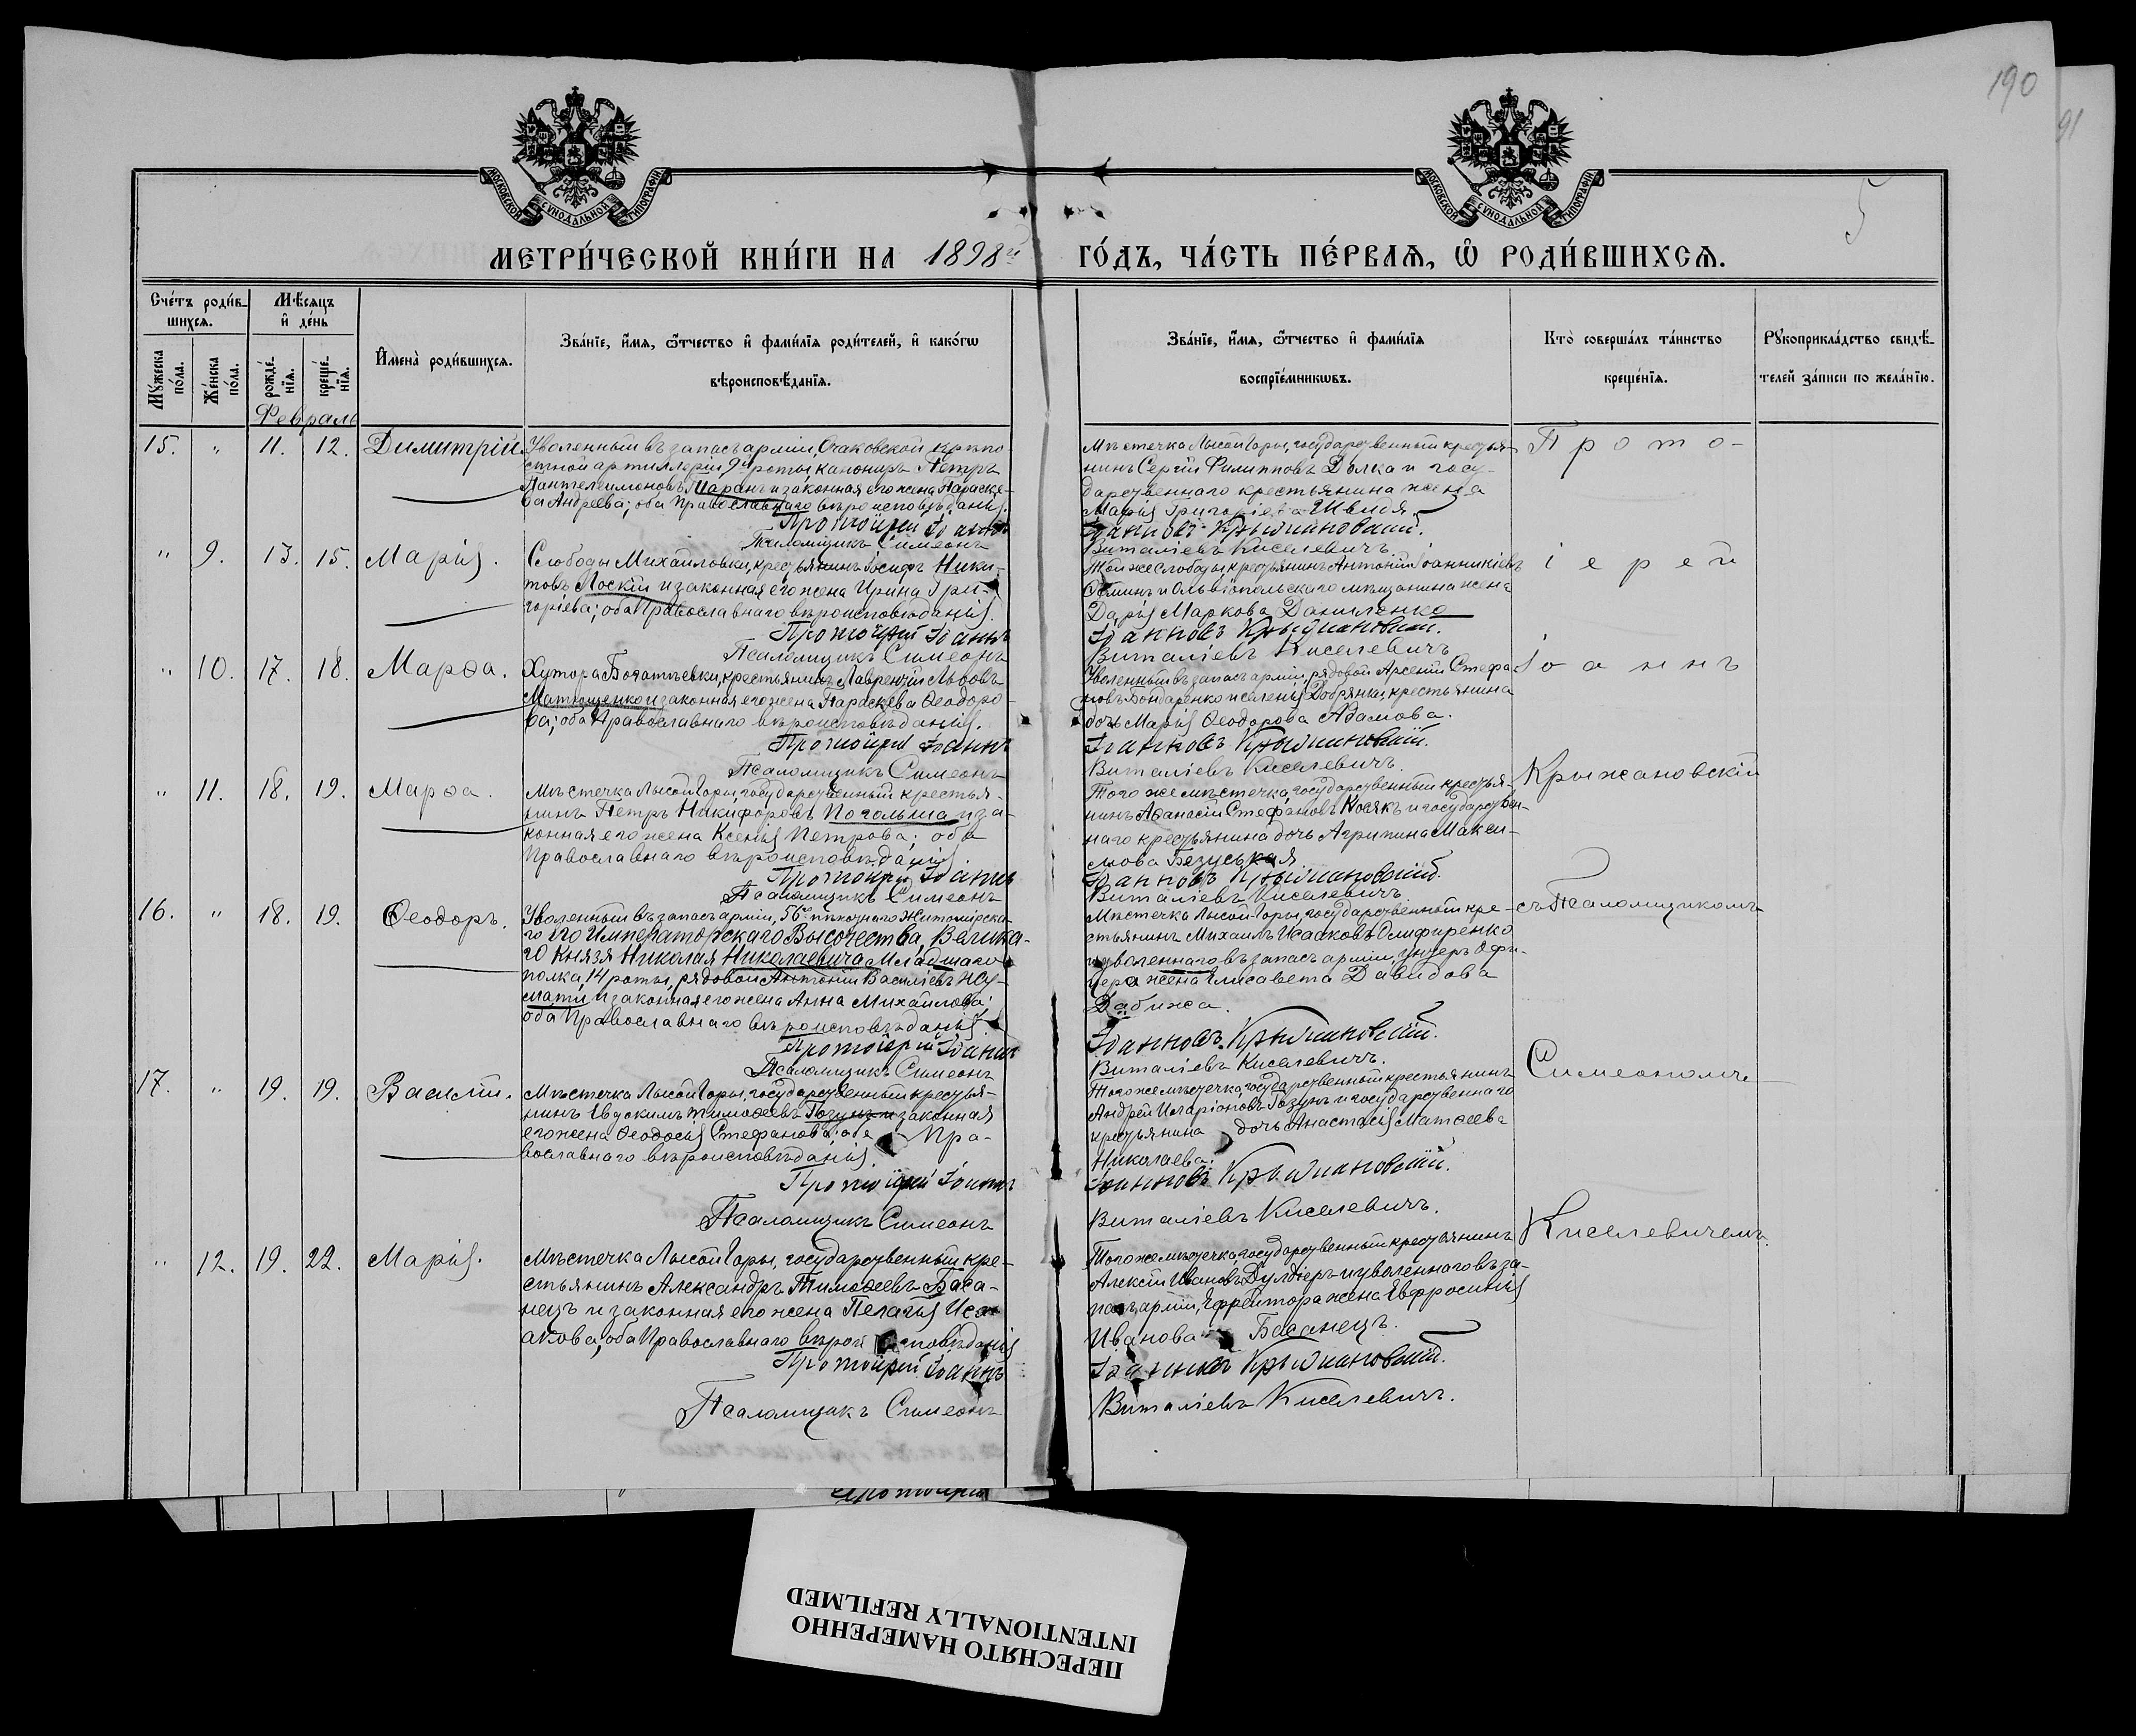 190
91
5
МОСКОВСКОЙ СУНОДАЛЬНОЙ ТИПОГРАФІИ
МОСКОВСКОЙ СУНОДАЛЬНОЙ ТИПОГРАФІИ
МЕТРИ́ЧЕСКОЙ КНИ́ГИ НА 1898й ГО́ДЪ, ЧА́СТЬ ПЕ́РВАѦ, Ѡ҆ РОДИ́ВШИХСѦ.
Сче́тъ роди́в-
шихсѧ.
Мѣ́сѧцъ
и҆ де́нь
Мꙋ́жеска по́ла.
Же́нска по́ла.
рожде́-
нїѧ.
креще́-
нїѧ.
И҆мена̀ роди́вшихсѧ.
Зва́нїе, и҆́мѧ, ѻ҆́тчество и҆ фами́лїѧ роди́телей, и҆ како́гѡ
вѣроисповѣ́данїѧ.
Зва́нїе, и҆́мѧ, ѻ҆́тчество и҆ фами́лїѧ
воспрїе́мникѡвъ.
Кто̀ соверша́лъ та́инство
креще́нїѧ.
Рꙋкоприкла́дство свидѣ́-
телей за́писи по жела́нїю.
Февраль
15. " 11. 12. Димитрій.
Уволенный въ запасъ арміи, Очаковской крѣпо
стной артиллеріи 9й роты, канониръ Петръ
Пантелеимоновъ Шаранъ и законная его жена Параске-
ва Андреева; оба православнаго вѣроисповѣданія.
Протоіерей Іоаннъ
Псаломщикъ Симеонъ
Мѣстечка Лысой Горы, государственный крестья-
нинъ Сергій Филипповъ Долка и госу-
дарственнаго крестьянина жена
Марія Григоріева Швидя.
Іоанновъ Крыжановскій.
Виталіевъ Киселевичъ
Прото-
" 9. 13. 15. Марія.
Слободы Михайловки, крестьянинъ Іосифъ Ники-
товъ Лоскій и законная его жена Ирина Гри-
горіева; оба Православнаго вѣроисповѣданія.
Протоіерей Іоаннъ
Псаломщикъ Симеонъ
Той же слободы, крестьянинъ Антоній Іоанникіевъ
и Ольвіопольскаго мѣщанина жена
Дарія Маркова Даниленко
Іоанновъ Крыжановскій.
Виталіевъ Киселевичъ
іерей
" 10. 17. 18. Марѳа.
Хутора Богатыевки, крестьянинъ Лаврентій Львовъ
Матющенко и законная его жена Параскева Ѳеодоро-
ва; оба Православнаго вѣроисповѣданія.
Протоіерей Іоаннъ
Псаломщикъ Симеонъ
Уволенный въ запасъ арміи, рядовой Арсеній Стефа-
новъ Бондаренко и селенія Добрянки, крестьянина
дочь Марія Ѳеодорова Адамова.
Іоанновъ Крыжановскій.
Виталіевъ Киселевичъ.
Іоаннъ
" 11. 18. 19. Марѳа.
Мѣстечка Лысой Горы, государственный крестья-
нинъ Петръ Никифоровъ Погальша и за-
конная его жена Ксенія Петрова; оба
Православнаго вѣроисповѣданія.
Протоіерей Іоаннъ
Псаломщикъ Симеонъ
Того же мѣстечка, государственный крестья-
нинъ Аѳанасій Стефановъ Косякъ и государствен-
наго крестьянина дочь Агрипина Макси-
мова Безуськая
Іоанновъ Крыжановскій.
Виталіевъ Киселевичъ
Крыжановскій
16. " 18. 19. Ѳеодоръ.
Уволенный въ запасъ арміи, 56го пѣхотнаго Житомірска-
го Его Императорскаго Высочества, Велика-
го Князя Николая Николаевича Младшаго
полка, 14 роты, рядовой Антоній Васильевъ
и законная его жена Анна Михайлова;
оба Православнаго вѣроисповѣданія.
Протоіерей Іоаннъ
Псаломщикъ Симеонъ
Мѣстечка Лысой Горы, государственный кре-
стьянинъ Михаилъ Исааковъ Олифиренко
и уволеннаго въ запасъ арміи, унтеръ офи-
цера жена Елисавета Давидова
Дабижа.
Іоанновъ Крыжановскій.
Виталіевъ Киселевичъ.
съ Псаломщикомъ
17. " 19. 19. Василій.
Мѣстечка Лысой Горы, государственный крестья-
нинъ Евдокимъ Тимоѳеевъ Гозунъ и законная
его жена Ѳеодосія Стефанова; оба Пра-
вославнаго вѣроисповѣданія.
Протоіерей Іоаннъ
Псаломщикъ Симеонъ
Того же мѣстечка, государственный крестьянинъ
Андрей Иларіоновъ Гозунъ и государственнаго
крестьянина дочь Анастасія Матѳеева
Николаева.
Іоанновъ Крыжановскій.
Виталіевъ Киселевичъ.
Симеономъ
" 12. 19. 22. Марія.
Мѣстечка Лысой Горы, государственный кре-
стьянинъ Александръ Тимоѳеевъ Баса-
нецъ и законная его жена Пелагія Иса-
акова, оба Православнаго вѣроисповѣданія
Протоіерей Іоаннъ
Псаломщикъ Симеонъ
Того же мѣстечка, государственный крестьянинъ
Алексій Ивановъ Дулдіеръ и уволеннаго въ за-
пасъ арміи, Ефрейтора жена Евфросинія
Иванова Басанецъ.
Іоанновъ Крыжановскій.
Виталіевъ Киселевичъ.
Киселевичемъ.
Протоіерей
ПЕРЕСНЯТО НАМЕРЕННО
INTENTIONALLY REFILMED